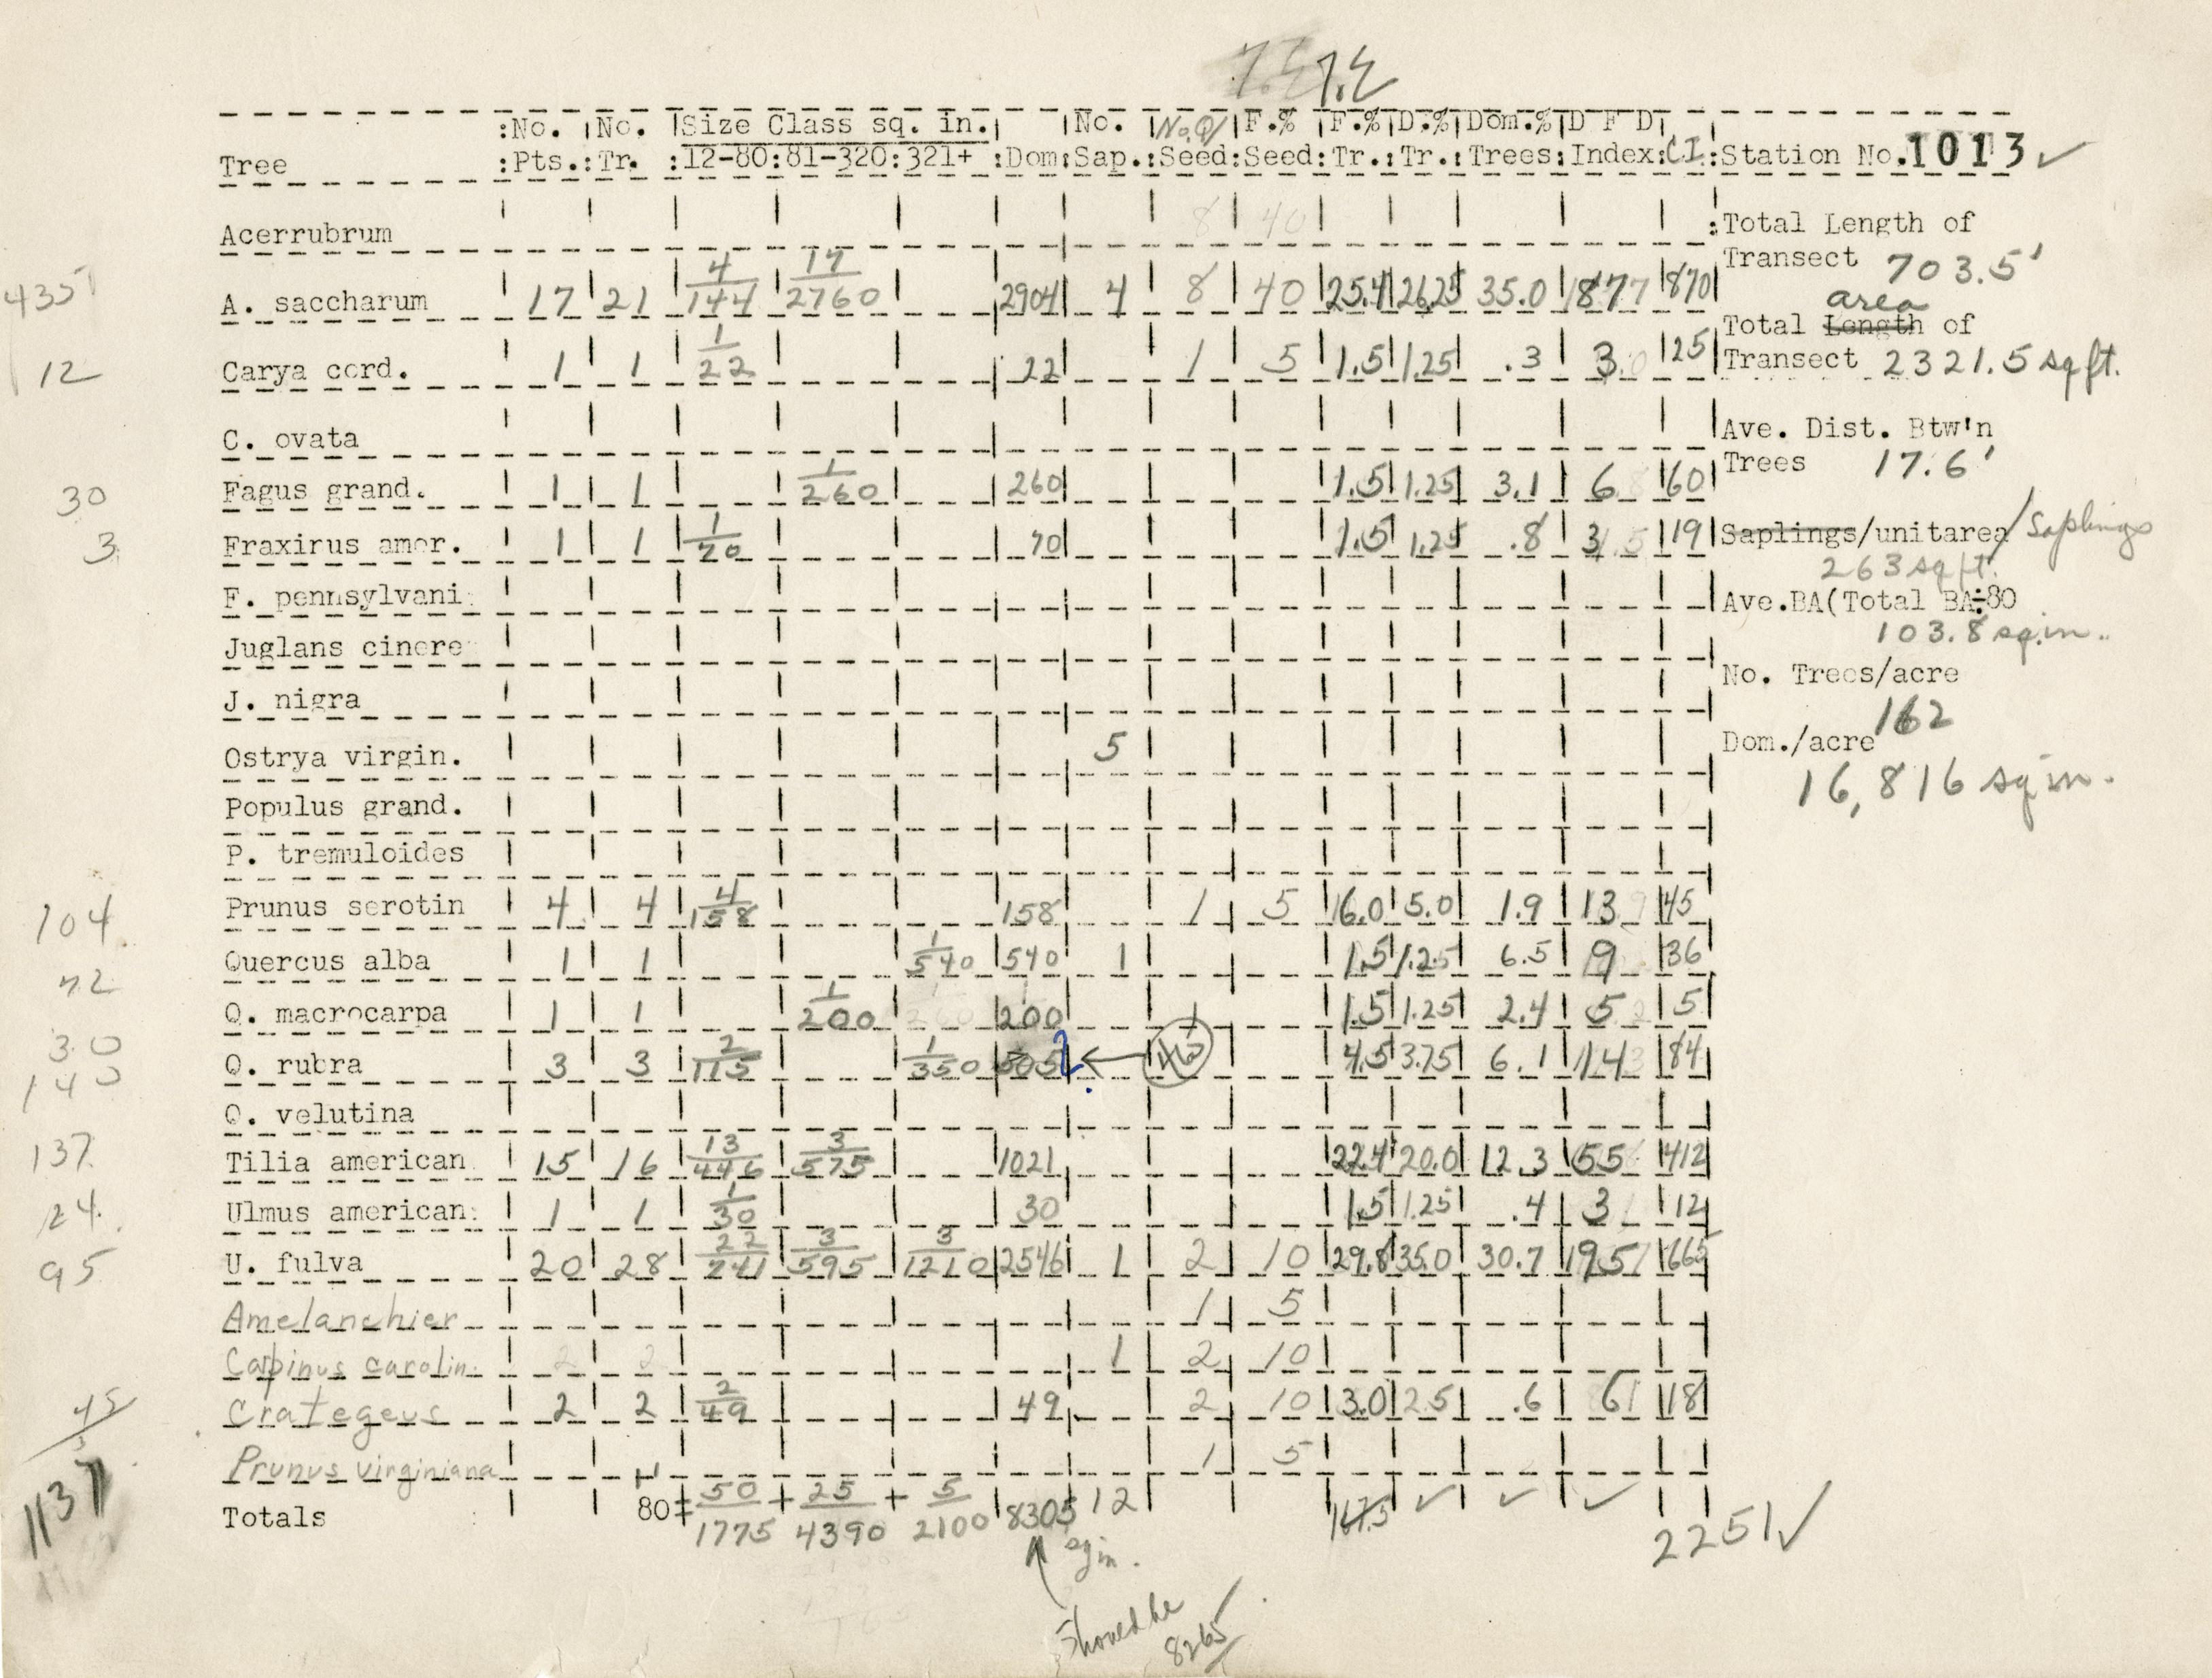 7.E 7.E
:No. No. Size Class sq. in. No. No.Q/ F.% F.% D.% Dom.% D F D
Tree :Pts.: Tr. :12-80:81-320:321+ :Dom: Sap.: Seed: Seed: Tr.: Tr.: Trees: Index: CI.: Station No. 1013 ✓
Acerrubrum 8 40
:Total Length of
Transect 703.5'
4 17
435 A. saccharum 17 21 144 2760 2904 4 8 40 25.4 26.25 35.0 87 870
area
Total Length of
1
12 Carya cord. 1 1 22 22 1 5 1.5 1.25 .3 3 25 Transect 2321.5 sq ft.
C. ovata
Ave. Dist. Btw'n
Trees 17.6'
1
30 Fagus grand. 1 1 260 260 1.5 1.25 3.1 6 60
1
3 Fraxirus amer. 1 1 70 70 1.5 1.25 .8 3 19
Saplings/unitarea/Saplings
263 sq ft.
F. pennsylvani
Ave.BA(Total BA÷80
103.8 sq.in..
Juglans cinere
No. Trees/acre
162
J. nigra
Dom./acre
16,816 sq in.
Ostrya virgin. 5
Populus grand.
P. tremuloides
4
104 Prunus serotin 4 4 158 158 1 5 6.0 5.0 1.9 13 45
1
72 Quercus alba 1 1 540 540 1 1.5 1.25 6.5 9 36
1
30 Q. macrocarpa 1 1 200 200 1 1.5 1.25 2.4 5 5
2 1
140 Q. rubra 3 3 115 350 505 ? 4.5 3.75 6.1 14 84
Q. velutina
13 3
137 Tilia american 15 16 446 575 1021 22.4 20.0 12.3 55 412
1
24 Ulmus american 1 1 30 30 1.5 1.25 .4 3 12
22 3 3
95 U. fulva 20 28 741 595 1210 2546 1 2 10 29.8 35.0 30.7 95 665
Amelanchier 1 5
Carpinus carolin. 2 2 1 2 10
2
45 Crategeus 2 2 49 49 2 10 3.0 2.5 .6 6 18
Prunus virginiana 1 5
1137
50 + 25 + 5
Totals 80 1775 4390 2100 8305 12 167.5 ✓ ✓ ✓ 2251 ✓
sq in.
Should be
8265